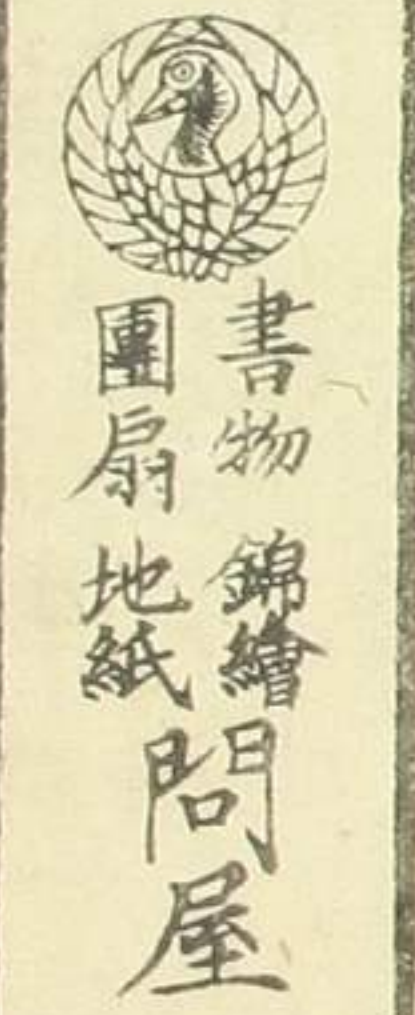 書物 錦繪
團扇 地紙
問屋